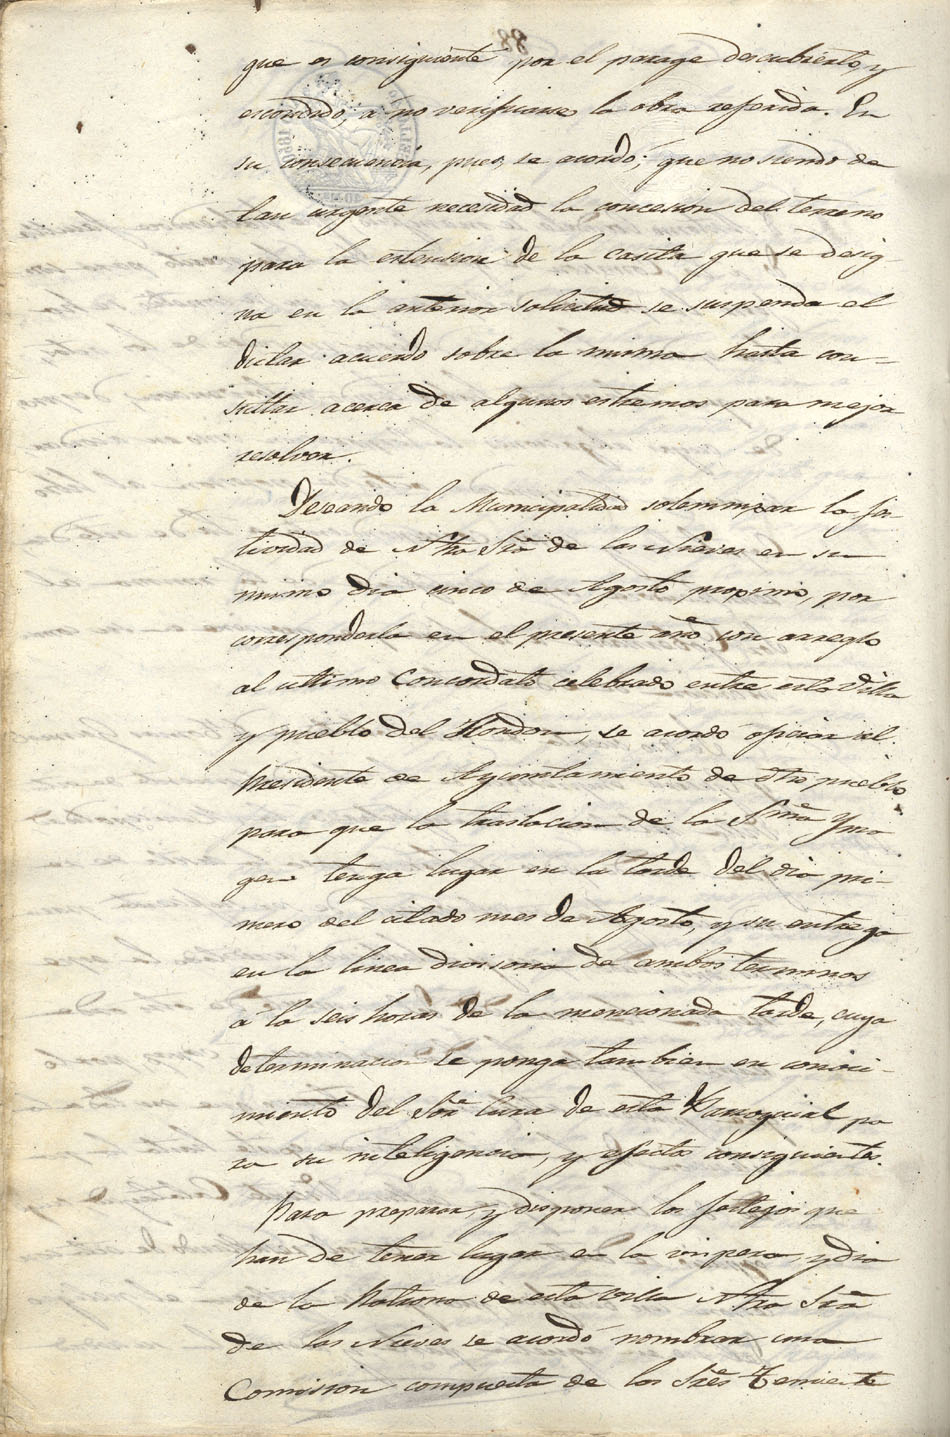 que es consiguiente por el parage descubierto, y
escondido, a no verificarse la obra referida. En
su consecuencia, pues, se acordó; que no siendo de
tan urgente necesidad la concesion del terreno
para la estension de la casita que se desig-
na en la anterior solicitud se suspenda el
dictar acuerdo sobre la misma hasta con-
sultar acerca de algunos estremos para mejor
resolver.
Deseando la Municipalidad solemnizar la fes-
tividad de Ntra Srã de las Nieves en su
mismo dia cinco de Agosto proximo, por
corresponderla en el presente año con arreglo
al ultimo Concordato celebrado entre esta Villa
y pueblo del Hondon, se acordó oficiar al
Presidente de Ayuntamiento de dho pueblo
para que la traslacion de la Smã Yma
gen tenga lugar en la tarde del dia pri-
mero del citado mes de Agosto, y su entrega
en la linea divisoria de ambos terminos
á la seis horas de la mencionada tarde, cuya
determinacion se ponga tambien en conoci-
miento del Sõr Cura de esta Parroquial pa
ra su inteligencia, y efectos consiguientes.
Para preparar, y disponer los festejos que
han de tener lugar en la vispera, y dia
de la Patrona de esta villa Ntra Srã
de las Nieves se acordó nombrar una
Comision compuesta de los Sres Teniente